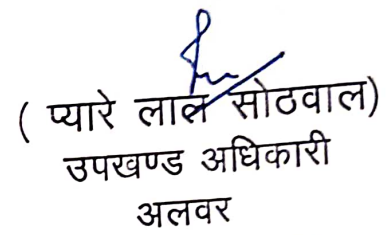 ( प्यारे लाल सोठवाल)
उपखण्ड अधिकारी
अलवर